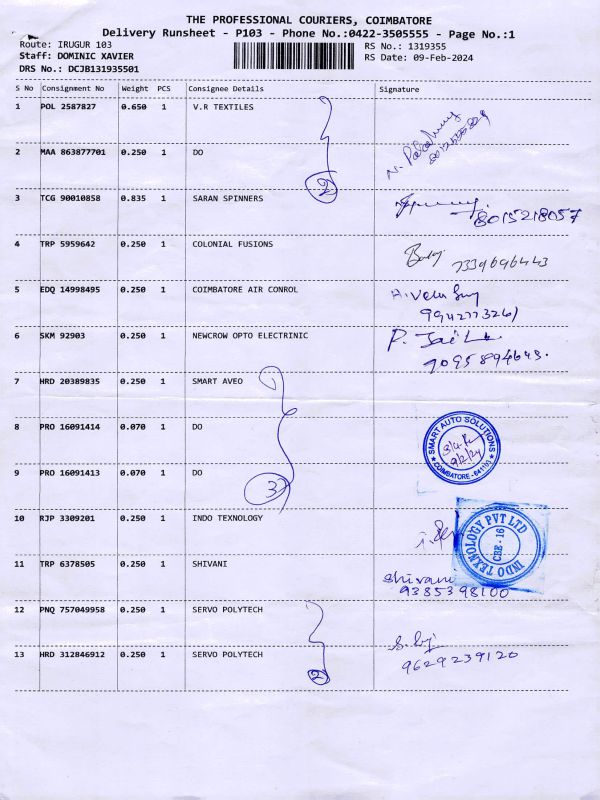 THE PROFESSIONAL COURIERS, COIMBATORE
Delivery Runsheet - P103 - Phone No.:0422-3505555 - Page No.:1
Route: IRUGUR 103
RS No.: 1319355
Staff: DOMINIC XAVIER
RS Date: 09-Feb-2024
DRS No.: DCJB131935501
S No Consignment No Weight PCS Consignee Details Signature
1 POL 2587827 0.650 1 V.R TEXTILES
2 MAA 863877701 0.250 1 DO
2
3 TCG 90010858 0.835 1 SARAN SPINNERS
8015218057
4 TRP 5959642 0.250 1 COLONIAL FUSIONS
7339696443
5 EDQ 14998495 0.250 1 COIMBATORE AIR CONROL
9942773261
6 SKM 92903 0.250 1 NEWCROW OPTO ELECTRINIC
9095894643.
7 HRD 20389835 0.250 1 SMART AVEO
8 PRO 16091414 0.070 1 DO
SMART AUTO SOLUTIONS
9/2/24
COIMBATORE - 641103
9 PRO 16091413 0.070 1 DO
3
10 RJP 3309201 0.250 1 INDO TEXNOLOGY
INDO TEXNOLOGY PVT LTD
CBE - 16
11 TRP 6378505 0.250 1 SHIVANI
Shivani
9385398100
12 PNQ 757049958 0.250 1 SERVO POLYTECH
13 HRD 312846912 0.250 1 SERVO POLYTECH
2
9629239120